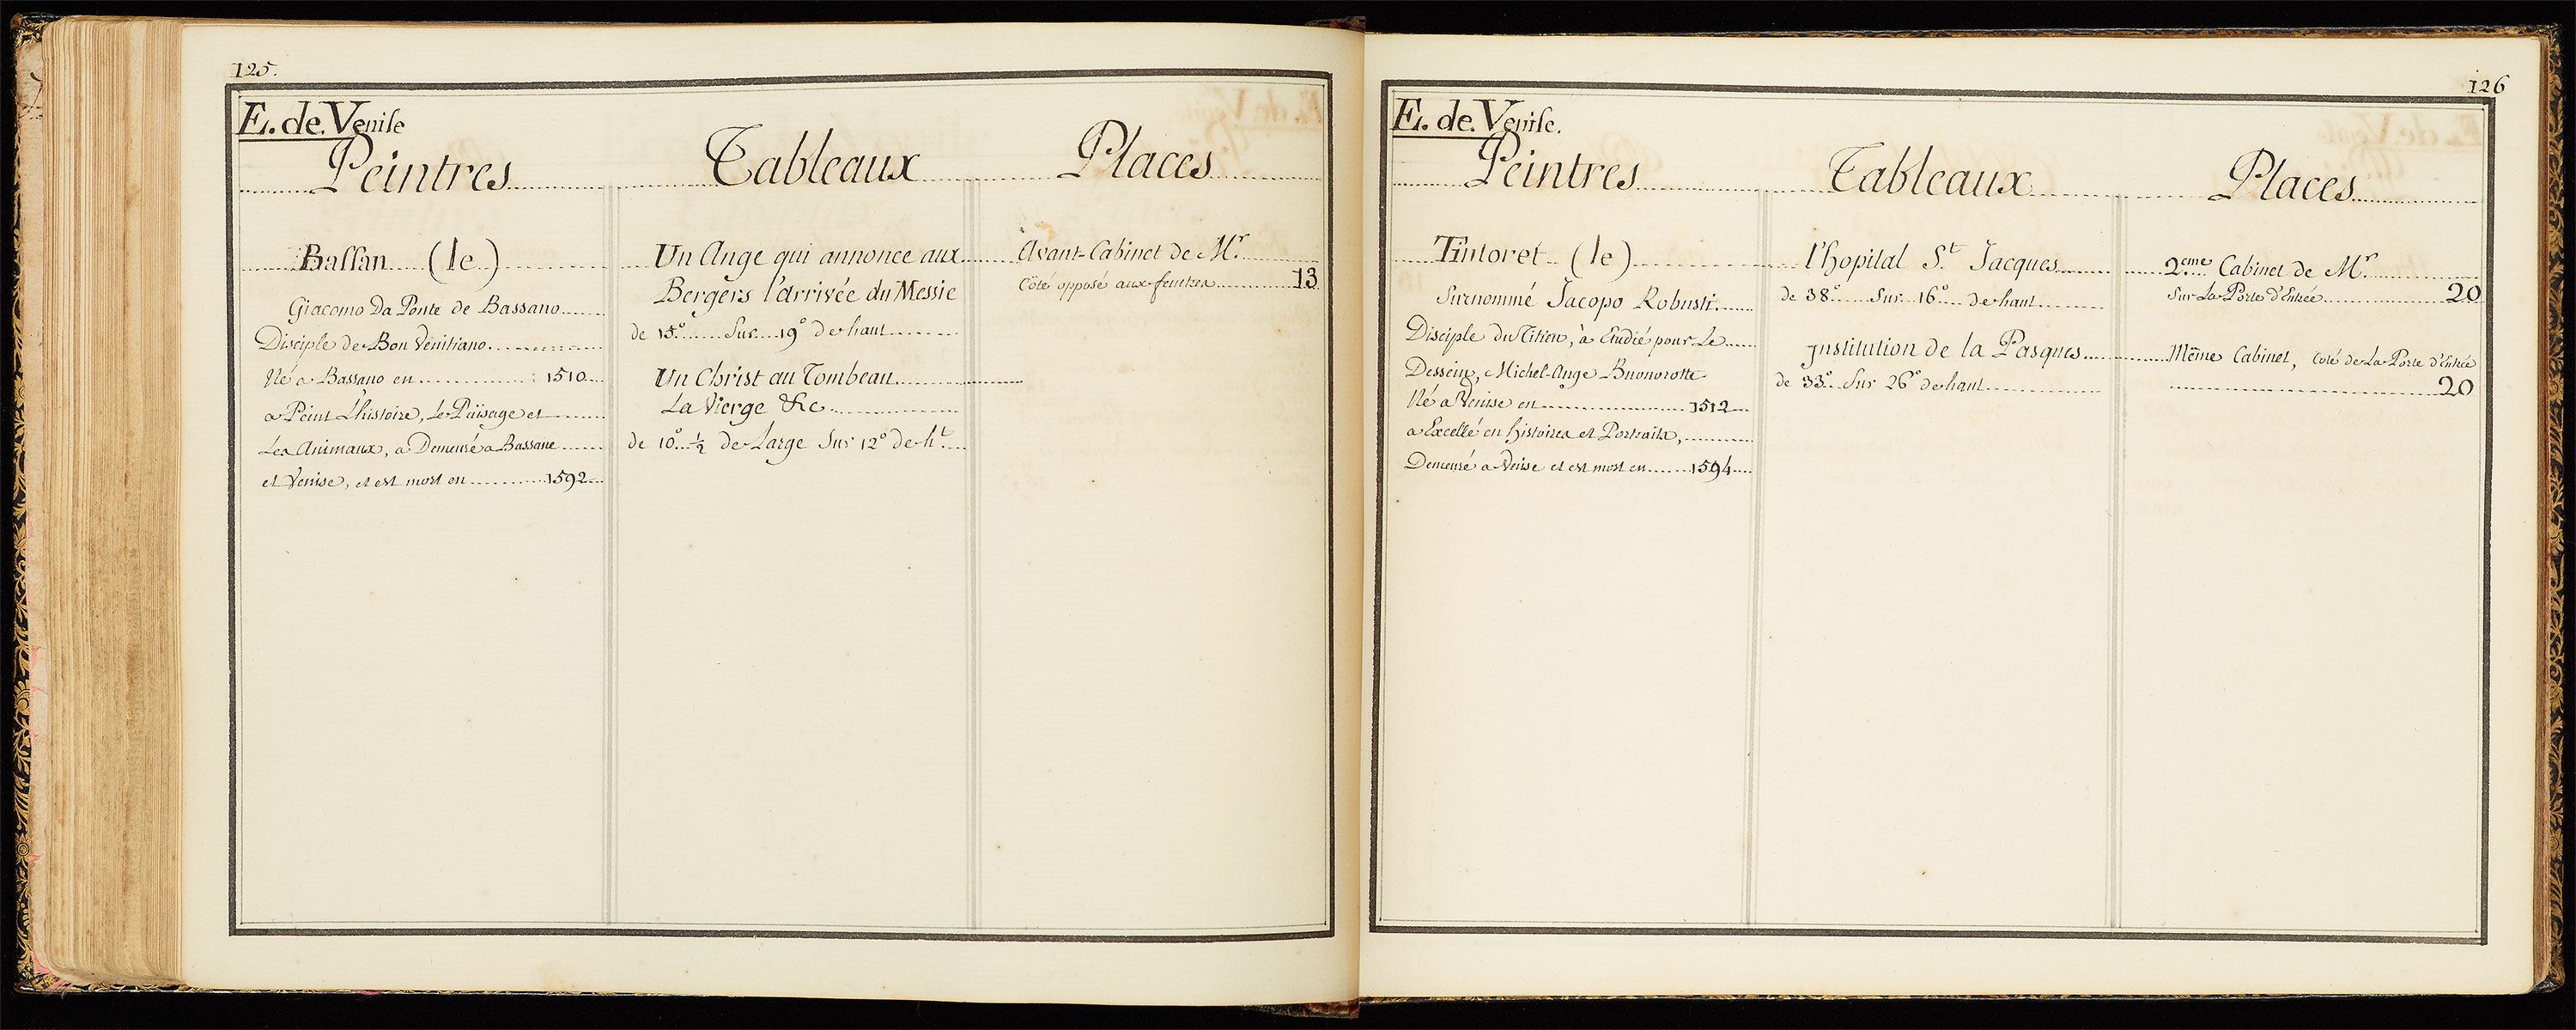 125.
E. de. Venise
Peintres
Tableaux
Places
Bassan (le)
Giacomo Da Ponte de Bassano
Disciple de Bon Venitiano
Né a Bassano en 1510
a Peint L'histoire, Le Païsage et
Les Animaux, a Demeuré a Bassane
et Venise, et est mort en 1592
Un Ange qui annonce aux
Bergers l'arrivée du Messie
de 15.° Sur 19° de haut
Un Christ au Tombeau
La Vierge &c
de 10° ½ de Large Sur 12° de ht.
Avant-Cabinet de Mr
Côté opposé aux fenitres 13
126
E. de. Venise.
Peintres
Tableaux
Places
Tintoret (le)
Surnommé Jacopo Robusti.
Disciple du Titien, à Etudié pour Le
Dessein, Michel-Ange Buonorotte
Né a Venise en 1512
a Excellé en histoires et Portraits,
Demeuré a Venise et est mort en 1594
l'hopital S.t Jacques
de 38° Sur 16° de haut
Institution de la Pasques
de 33° Sur 26° de haut
2eme Cabinet de Mr
Sur La Porte d'Entrée 20
Même Cabinet, Coté de La Porte d'Entrée
20